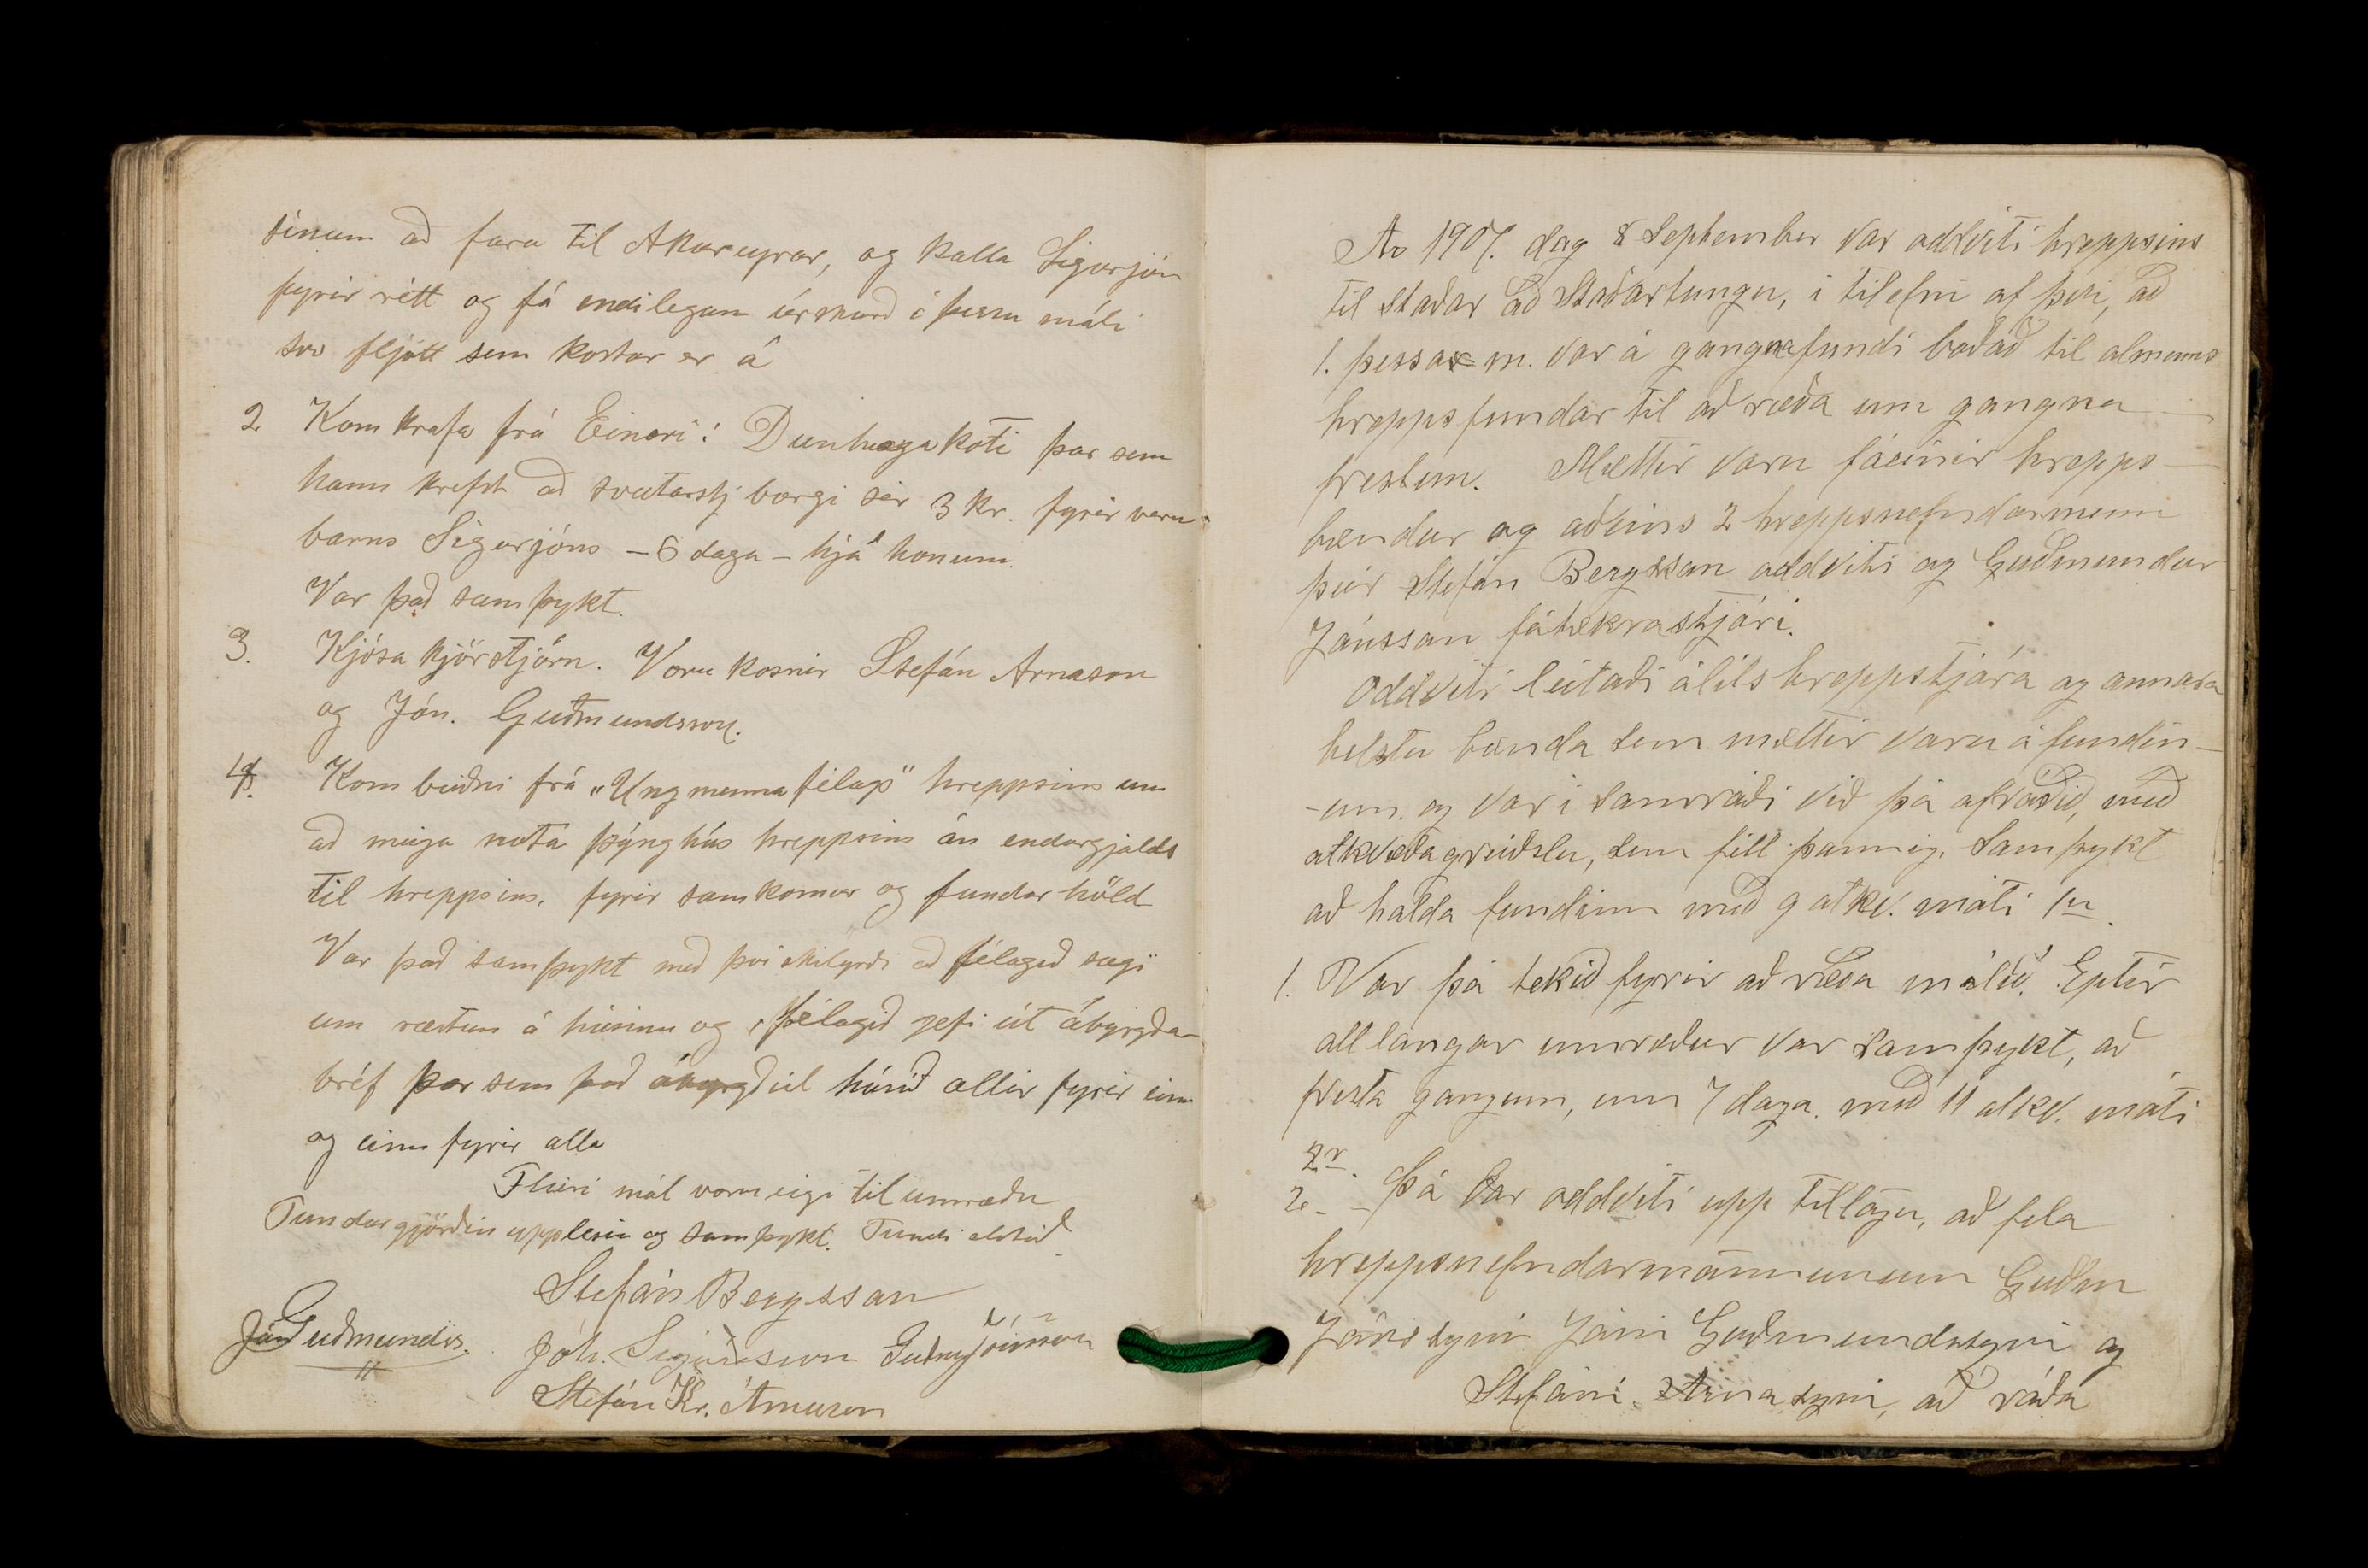 sinum að fara til Akureyrar, og kalla Sigurjón
fyrir rétt og fá endilegan úrskurð í þessu máli
svo fljótt sem kostur er á
2. Kom krafa frá Einari í Dunhagakoti þar sem
hann krefst að sveitarstj borgi sér 3 kr. fyrir veru
barns Sigurjóns – 6 daga – hjá honum.
Var það samþykt.
3. Kjósa kjörstjórn. Voru kosnir Stefán Arnason
og Jón. Guðmundsson.
4. Kom beiðni frá „Ungmennafélagi" hreppsins um
að meiga nota þýnghús hreppsins án endurgjalds
til hreppsins, fyrir samkomur og fundar höld
Var það samþykt með því skilyrði að félagið sægi
um ræstun á húsinu og félagið gefi út ábyrgða-
bréf þar sem það húsið allir fyrir einn
og einn fyrir alla
Fleiri mál voru eigi til umræðu
Fundargjörðin upplesin og samþykt. Fundi slitið
Stefán Bergsson
Jón Guðmundss. Jóh. Sigurðsson Guðm Jónsson
Stefán Kr. Árnason
Ár 1907. dag 8 September var oddviti hreppsins
til staðar að Skriðartungu, í tilefni af því, að
1. þessa m. var á gangnafundi boðað til almenns
hreppsfundar til að ræða um gangna-
frestun. Mættir voru fáeinir hrepps-
bændur og aðeins 2 hreppsnefndarmenn
þeir Stefán Bergsson oddviti og Guðmundur
Jónsson fátækrastjóri.
Oddviti leitaði álits hreppstjóra og annara
helstu bænda sem mættir voru á fundin-
-um. og var í samráði við þá afráðið, með
atkvæðagreiðslu, sem féll þannig. Samþykt
að halda fundinn með 9 atkv. móti 1u.
1. Var þá tekið fyrir að ræða málið. Eptir
all langar umræður var samþykt, að
fresta gangum, um 7 daga. með 11 atkv. móti
2r.
2. – Þá bar oddviti upp tillögu, að fela
hreppsnefndarmönnunum Guðm
Jónssyni Jóni Guðmundssyni og
Stefáni Arnasyni, að ráða